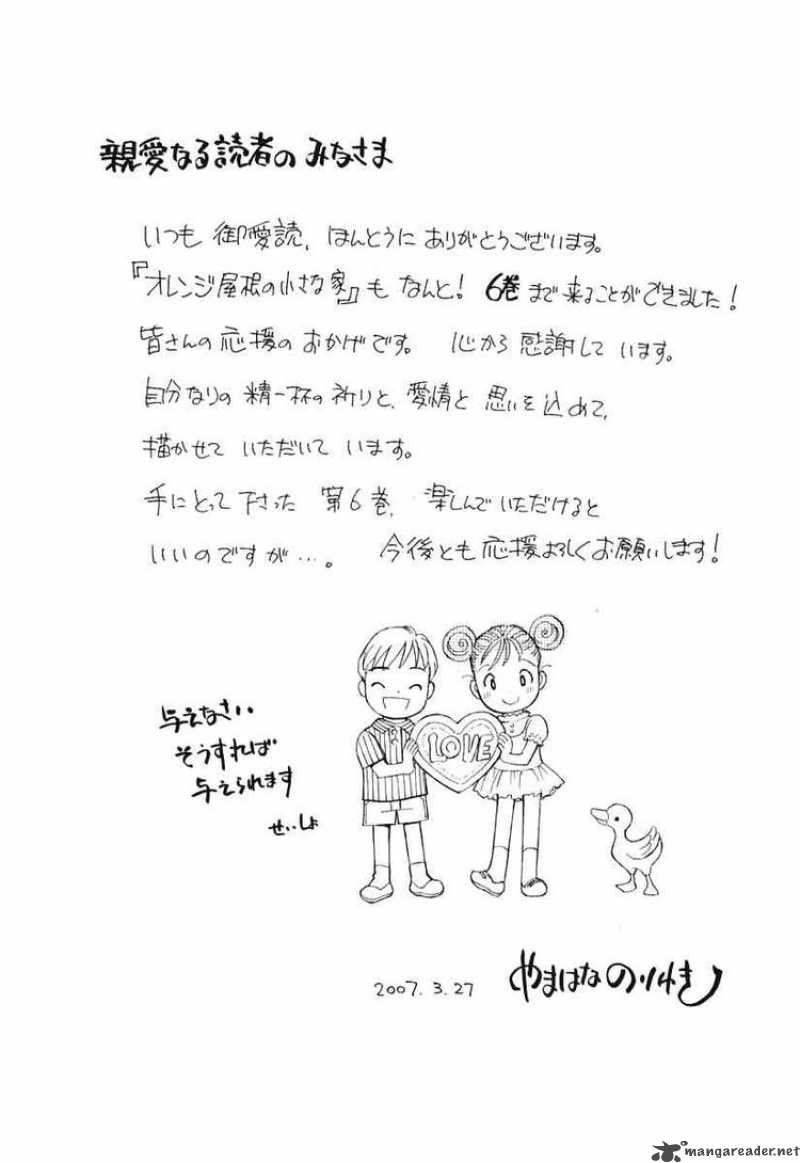 親愛なる読者の みなさま
いつも 御愛読、ほんとうに ありがとうございます。
『オレンジ屋根の小さな家』も なんと! 6巻 まで来ることができました!
皆さんの 応援の おかげです。 心から 感謝して います。
自分なりの 精一杯の 祈りと、愛情と 思いを 込めて、
描かせて いただいて います。
手にとって 下さった 第6巻、楽しんで いただけると
いいのですが…。 今後とも 応援よろしく お願いします!
LOVE
与えなさい
そうすれば
与えられます
せいしょ
2007. 3. 27
やまはな のりゆき
mangareader.net